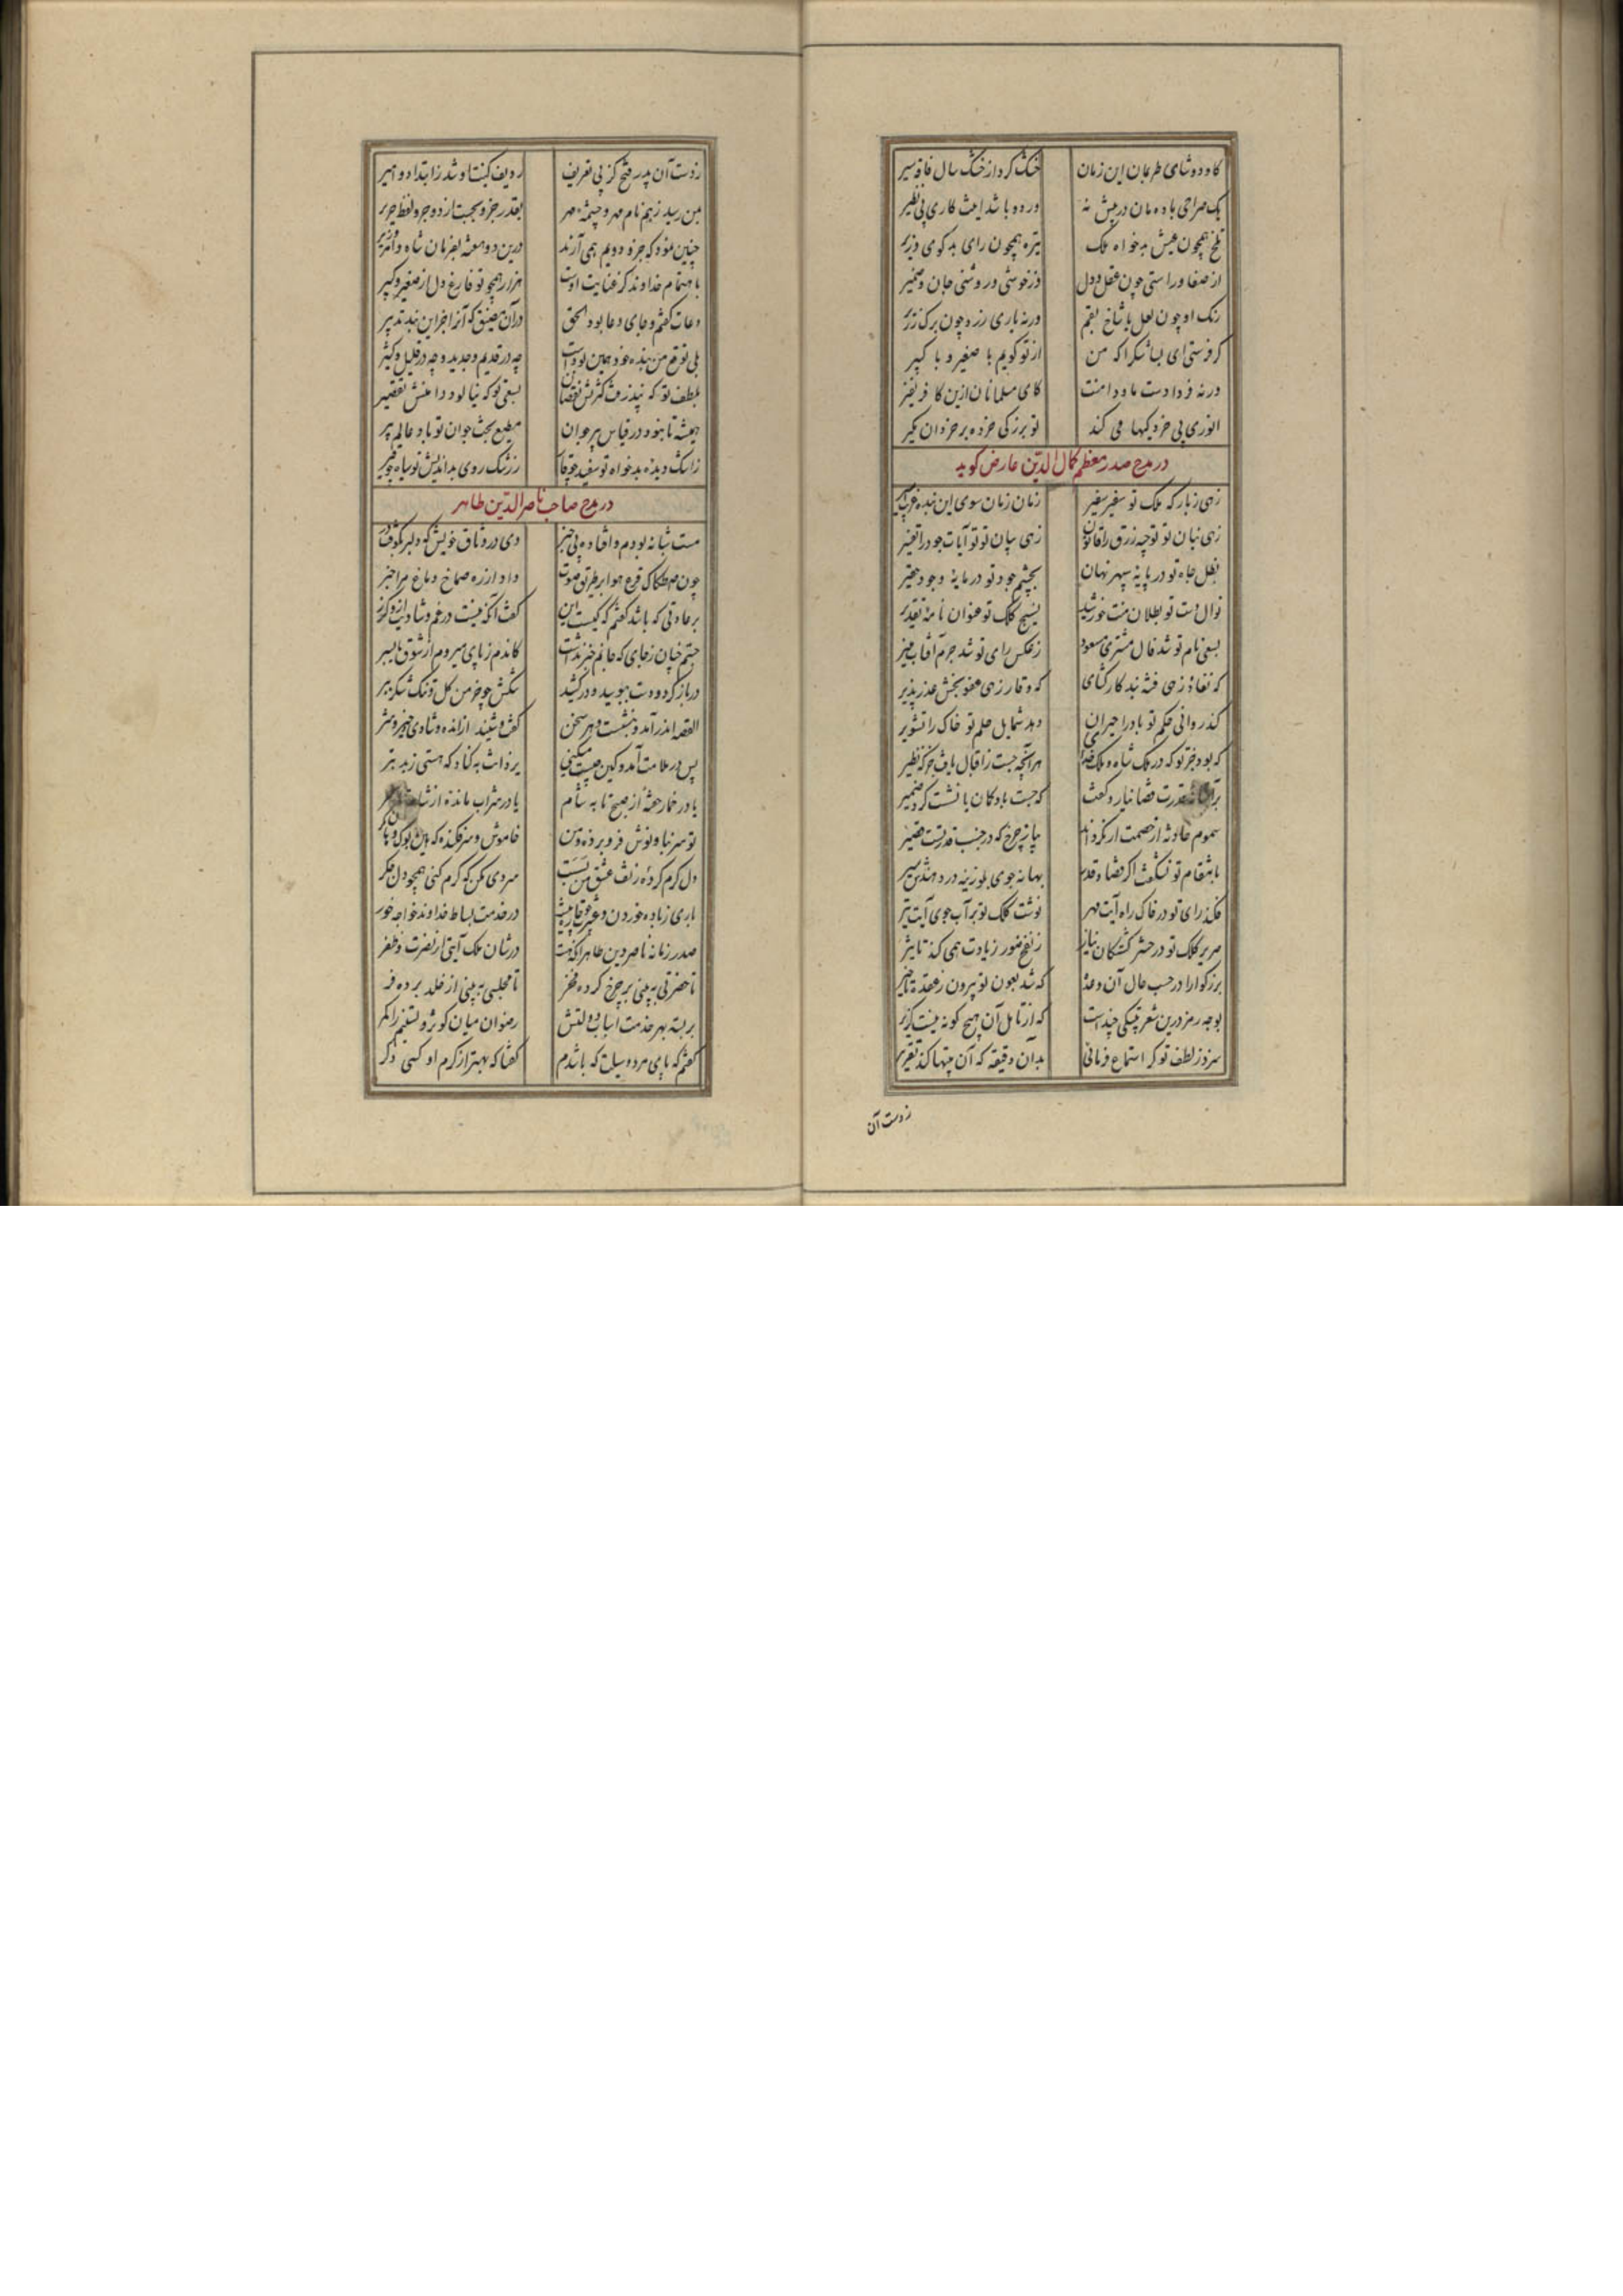 کاو دوشای طرمان این زمان خشک کرد از خشک سال فاقه سیر
یک صراحی باده مان در پیش نه ور دو باشد اینت کاری بی نظیر
تلخ همچون عیش بدخواه ملک تیره همچون رای بدکوی وزیر
از صفا و راستی چون عقل و دل وز خوشی و روشنی جان و ضمیر
رنک او چون لعل یا شاخ بقم ورنه باری زرد چون برک زریر
کر فرستی ای بسا شکرا که من از تو کویم با صغیر و با کبیر
ورنه فردا دست ما و دامنت کای مسلمانان ازین کافر نفیر
انوری بی خردکیها می کند تو بزرکی خرده بر خردان مکیر
در مدح صدر معظم کمال الدین عارض کوید
زهی زبارکه ملک تو سفیر سفیر زمان زمان سوی این بنده غریب
زهی بنان تو توجیه رزق را قانون زهی بیان تو آیات جود را تفسیر
بظل جاه تو در پایهٔ سپهر نهان بچشم جود تو در مایهٔ وجود حقیر
نوال دست تو بطلان منت خورشید نسیج کلک تو عنوان نامهٔ تقدیر
بسعی نام تو شد فال مشتری مسعود ز عکس رای تو شد جرم آفتاب منیر
که نفاذ زهی فتنه بند کارکشای که وقار زهی عفو بخش عذر پذیر
کند روانی حکم تو باد را حیران دهد شمایل حلم تو خاک را تشویر
که بود جز تو که در ملک شاه و ملک خدای هر آنچه جست ز اقبال یافت جز که نظیر
قدرت قضا نیارد کفت که جست باد کان یا نشست کرد ضمیر
سموم حادثه از خصمت ار بکرداند پیاز چرخ که در جنب قدرتست قصیر
بانتقام تو نشکفت اکر قضا و قدر بهانه جوی بلوزینه در دهندش سیر
فکند رای تو در خاک راه آیت مهر نوشت کلک تو بر آب جوی آیت تیر
صریر کلک تو در حشر کشتکان نیاز ز نفخ صور زیادت همی کند تاثیر
بزرکوارا در حسب حال آن وعده که شد بعون تو بیرون ز عقدهٔ تاخیر
بوجه رمز درین شعر بیتکی چند است که از تامل آن هیچ کونه نیست کزیر
سزد ز لطف تو کر استماع فرمائی بدان دقیقه که آن بیتها کند تقریر
ز دست آن
ز دست آن پدر فتح کز پی تعریف ردیف کنیت او شد ز ابتدا دو امیر
بمن رسید زبیم نام مهر و چشمهٔ مهر بقدر جزو نجست از دو جزو لفظ حریر
چنین نمود که جزو دویم همی آرند درین دو هفته بفرمان شاه و امر وزیر
باهتمام خداوند کز عنایت اوست هزار همچو تو فارغ دل از صغیر و کبیر
دعات کفتم و جای دعا بود الحق در آن مضیق که آنرا جز این نبد تدبیر
بلی توقع من بنده خود همین بودست چه در قدیم و جدید و چه در قلیل و کثیر
بلطف تو که نپذرفت کثرتش نقصان بسعی تو که نیالود دامنش تقصیر
همیشه تا نبود در قیاس پیر جوان مطیع بخت جوان تو باد عالم پیر
ز اشک دیده بدخواه تو سفید چو قار ز رشک روی بداندیش تو سیاه چو قیر
در مدح صاحب ناصر الدین طاهر
مست شبانه بودم و افتاده بی خبر دی در وثاق خویش که دلبر بکوفت در
چون صطکاک قرع هوا بر طریق صوت داد از ره صماخ دماغ مرا خبر
بر عادتی که باشد کفتم که کیست این کفت آنکه نیست در غم و شادیت ازو کزر
جستم چنان ز جای که جانم خبر نداشت کاندم ز پای میروم از شوق یا بسر
در باز کرد و دست ببوسید و درکشید تنکش چو خرمن کل و تنک شکر ببر
القصه اندر آمد و بنشست و هر سخن کفت و شنید از انده و شادی و خیر و شر
پس در ملامت آمد و کین چیست میکنی یزدانت به کناد که هستی ز بد بتر
یا در خمار خفتهٔ از صبح تا به شام یا در شراب مانده از شام تا سحر
تو سر بنا و نوش فرو بردهٔ و من خاموش و سر فکنده که
دل کرم کردهٔ ز تف عشق من بسست سردی مکن که کرم کنی همچو دل جکر
باری ز باده خوردن و عشرت چو چاره نیست در خدمت بساط خداوند خواجه خور
صدر زمانه ناصر دین طاهر آنکه هست در شان ملک آیتی از نصرت و ظفر
تا حضرتی به بینی بر چرخ کرده فخر تا مجلسی به بینی از خلد برده فر
بر بسته بهر خدمت اسباب دولتش رضوان میان کوثر و تسنیم را کمر
کفتم که پای مرد وسیلت که باشدم کفتا که بهتر از کرم او کسی دکر